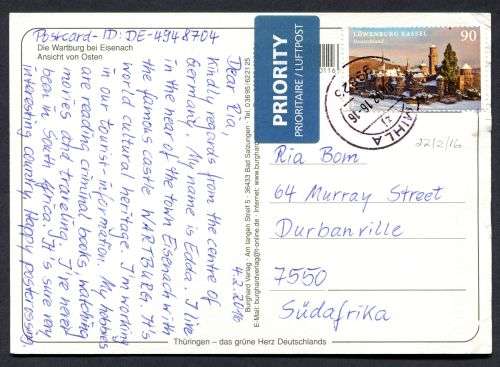 Postcard-ID: DE-4948704
Die Wartburg bei Eisenach
Ansicht von Osten
4.2.2016
Dear Ria,
Kindly regards from the centre of
Germany. My name is Edda. I live
in the near of the town Eisenach with
the famous castle WARTBURG. It's
world cultural heritage. I'm working
in our tourist-information. My hobbies
are reading criminal books, watching
movies and traveling. I've never
been in South Africa. It's sure very
interesting country. Happy postcrossing.
Burghard Verlag · Am langen Stahl 5 · 36433 Bad Salzungen · Tel. 03695-622125
E-Mail: burghardverlag@t-online.de · Internet: www.burghard
PRIORITY
PRIORITAIRE / LUFTPOST
LÖWENBURG KASSEL
Deutschland
90
22/2/16
Ria Bom
64 Murray Street
Durbanville
7550
Südafrika
Thüringen – das grüne Herz Deutschlands